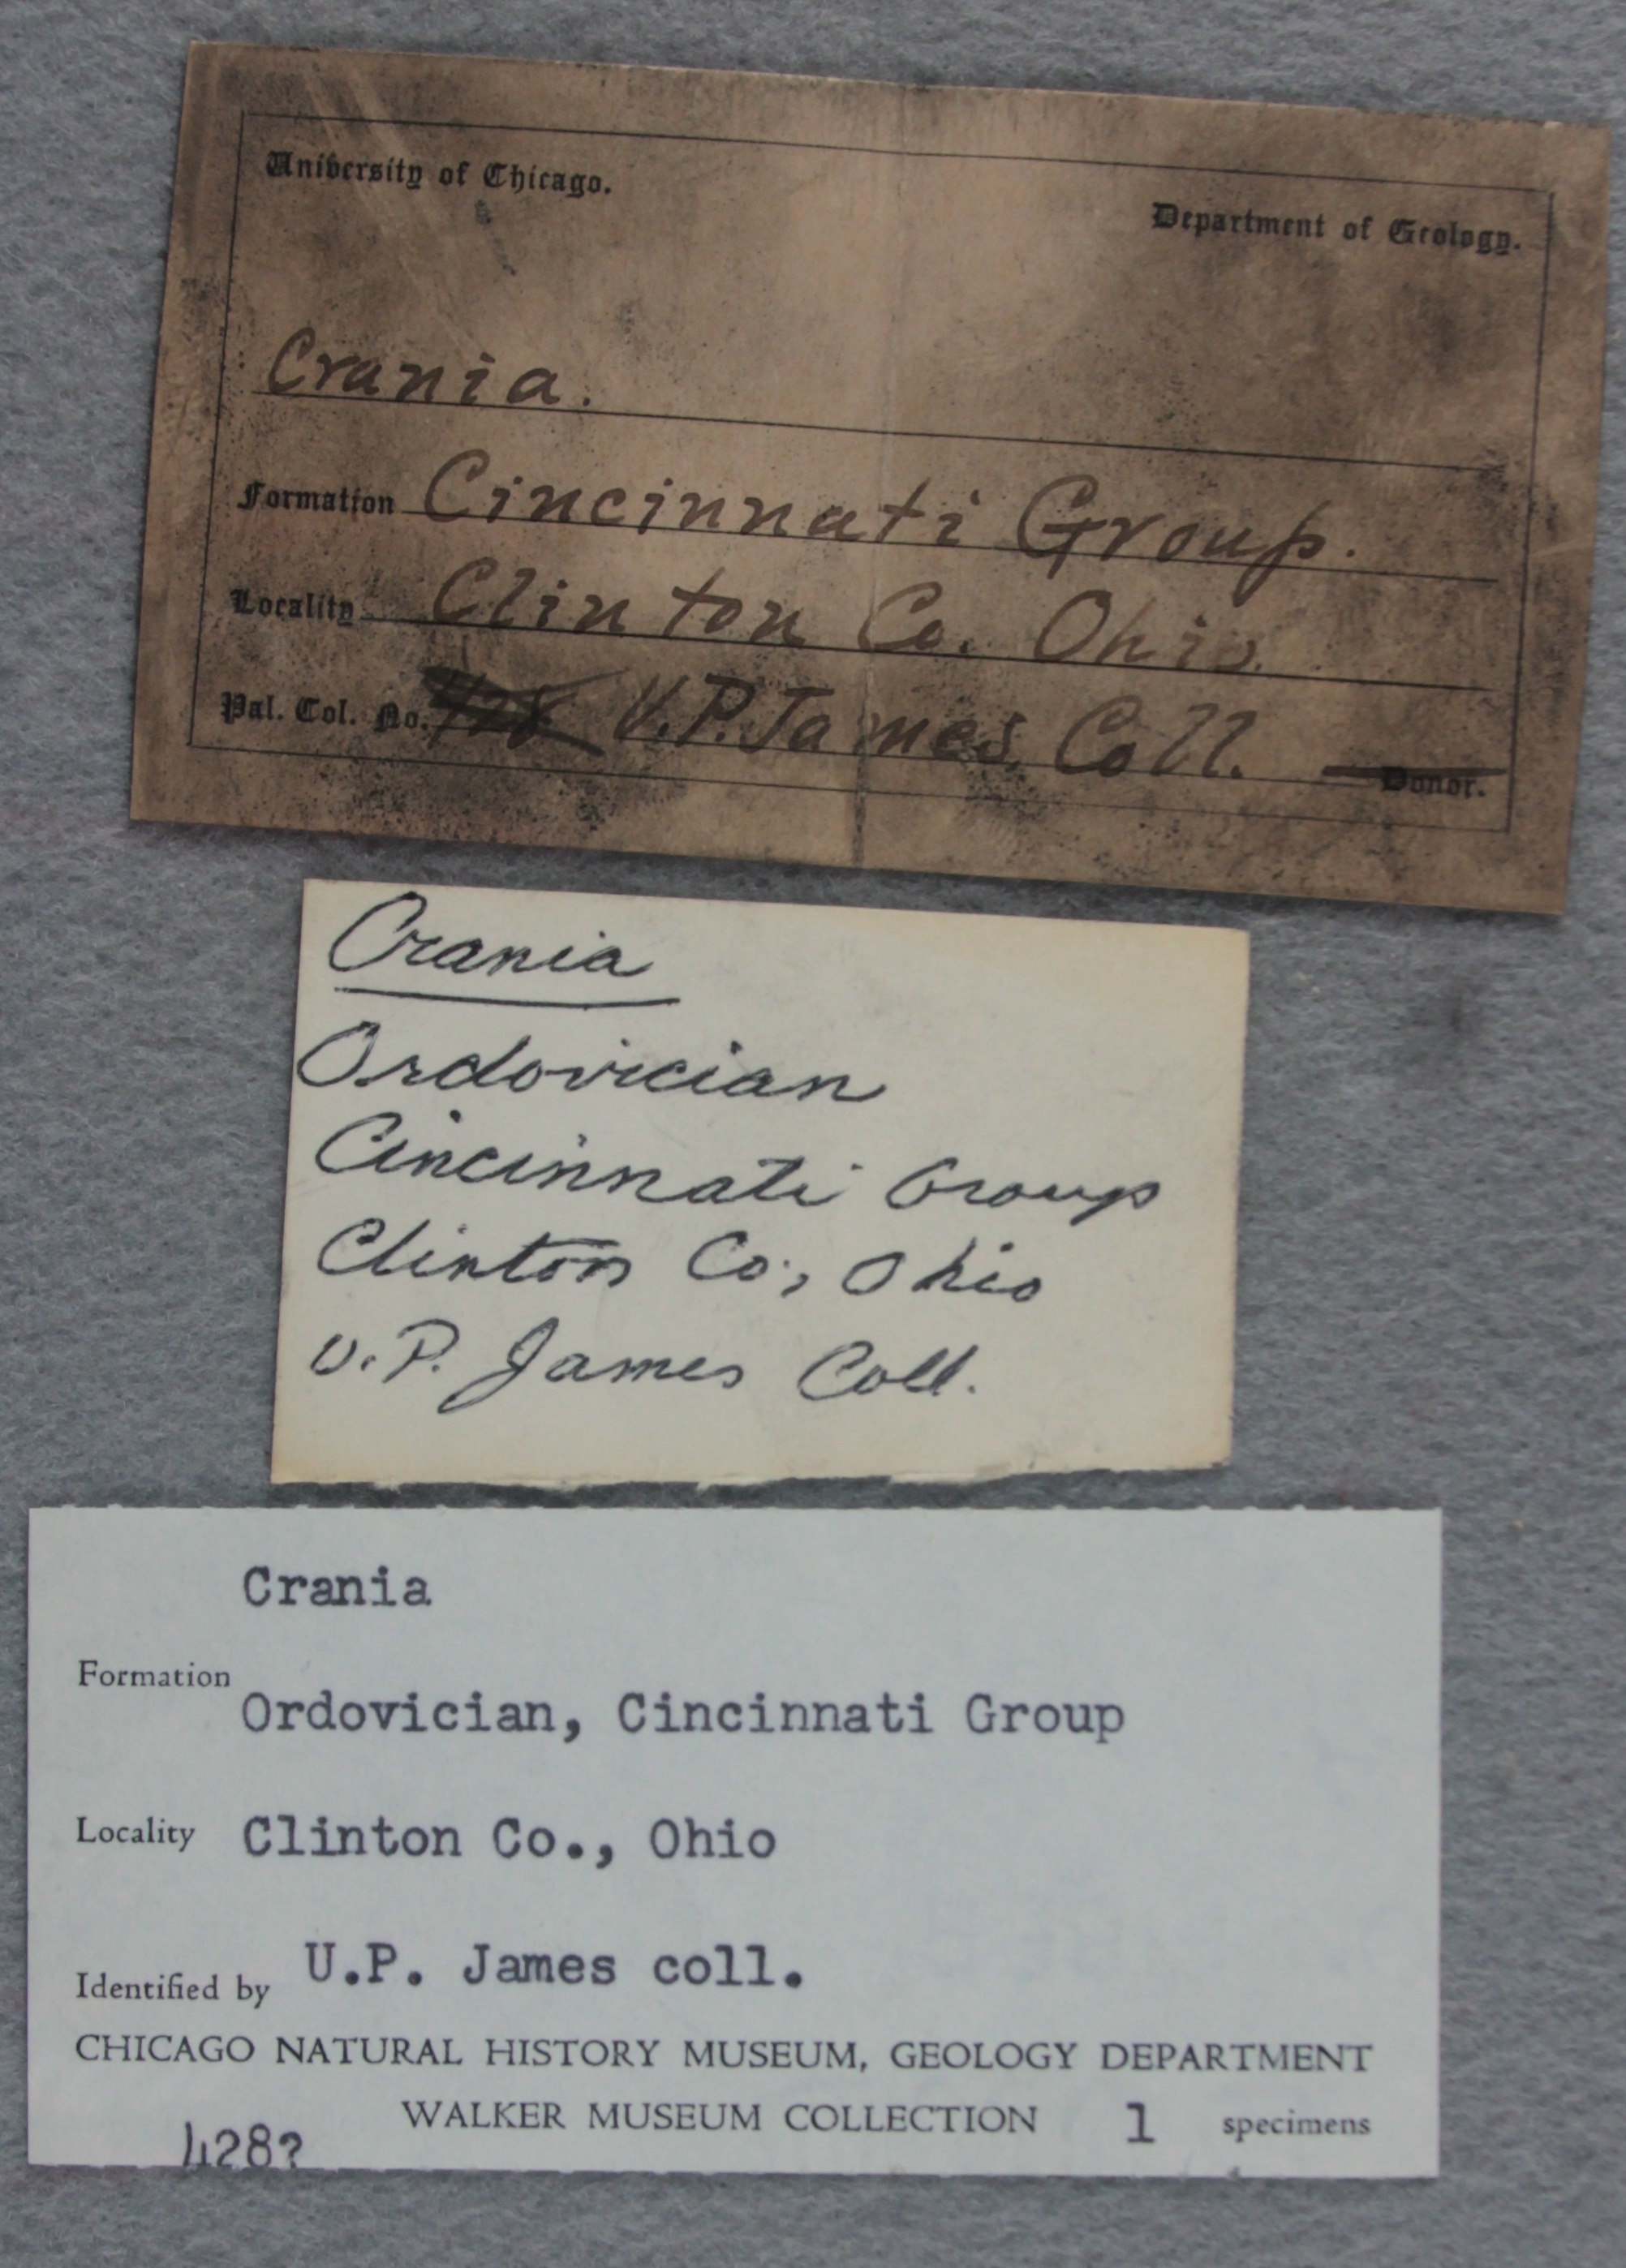 University of Chicago.
Department of Geology.
Crania.
Formation Cincinnati Group.
Locality Clinton Co. Ohio.
Pal. Col. No. 428 U.P. James Coll. Donor.
Crania
Ordovician
Cincinnati Group
Clinton Co., Ohio
U.P. James Coll.
Crania
Formation
Ordovician, Cincinnati Group
Locality Clinton Co., Ohio
Identified by U.P. James coll.
CHICAGO NATURAL HISTORY MUSEUM, GEOLOGY DEPARTMENT
WALKER MUSEUM COLLECTION 1 specimens
428?